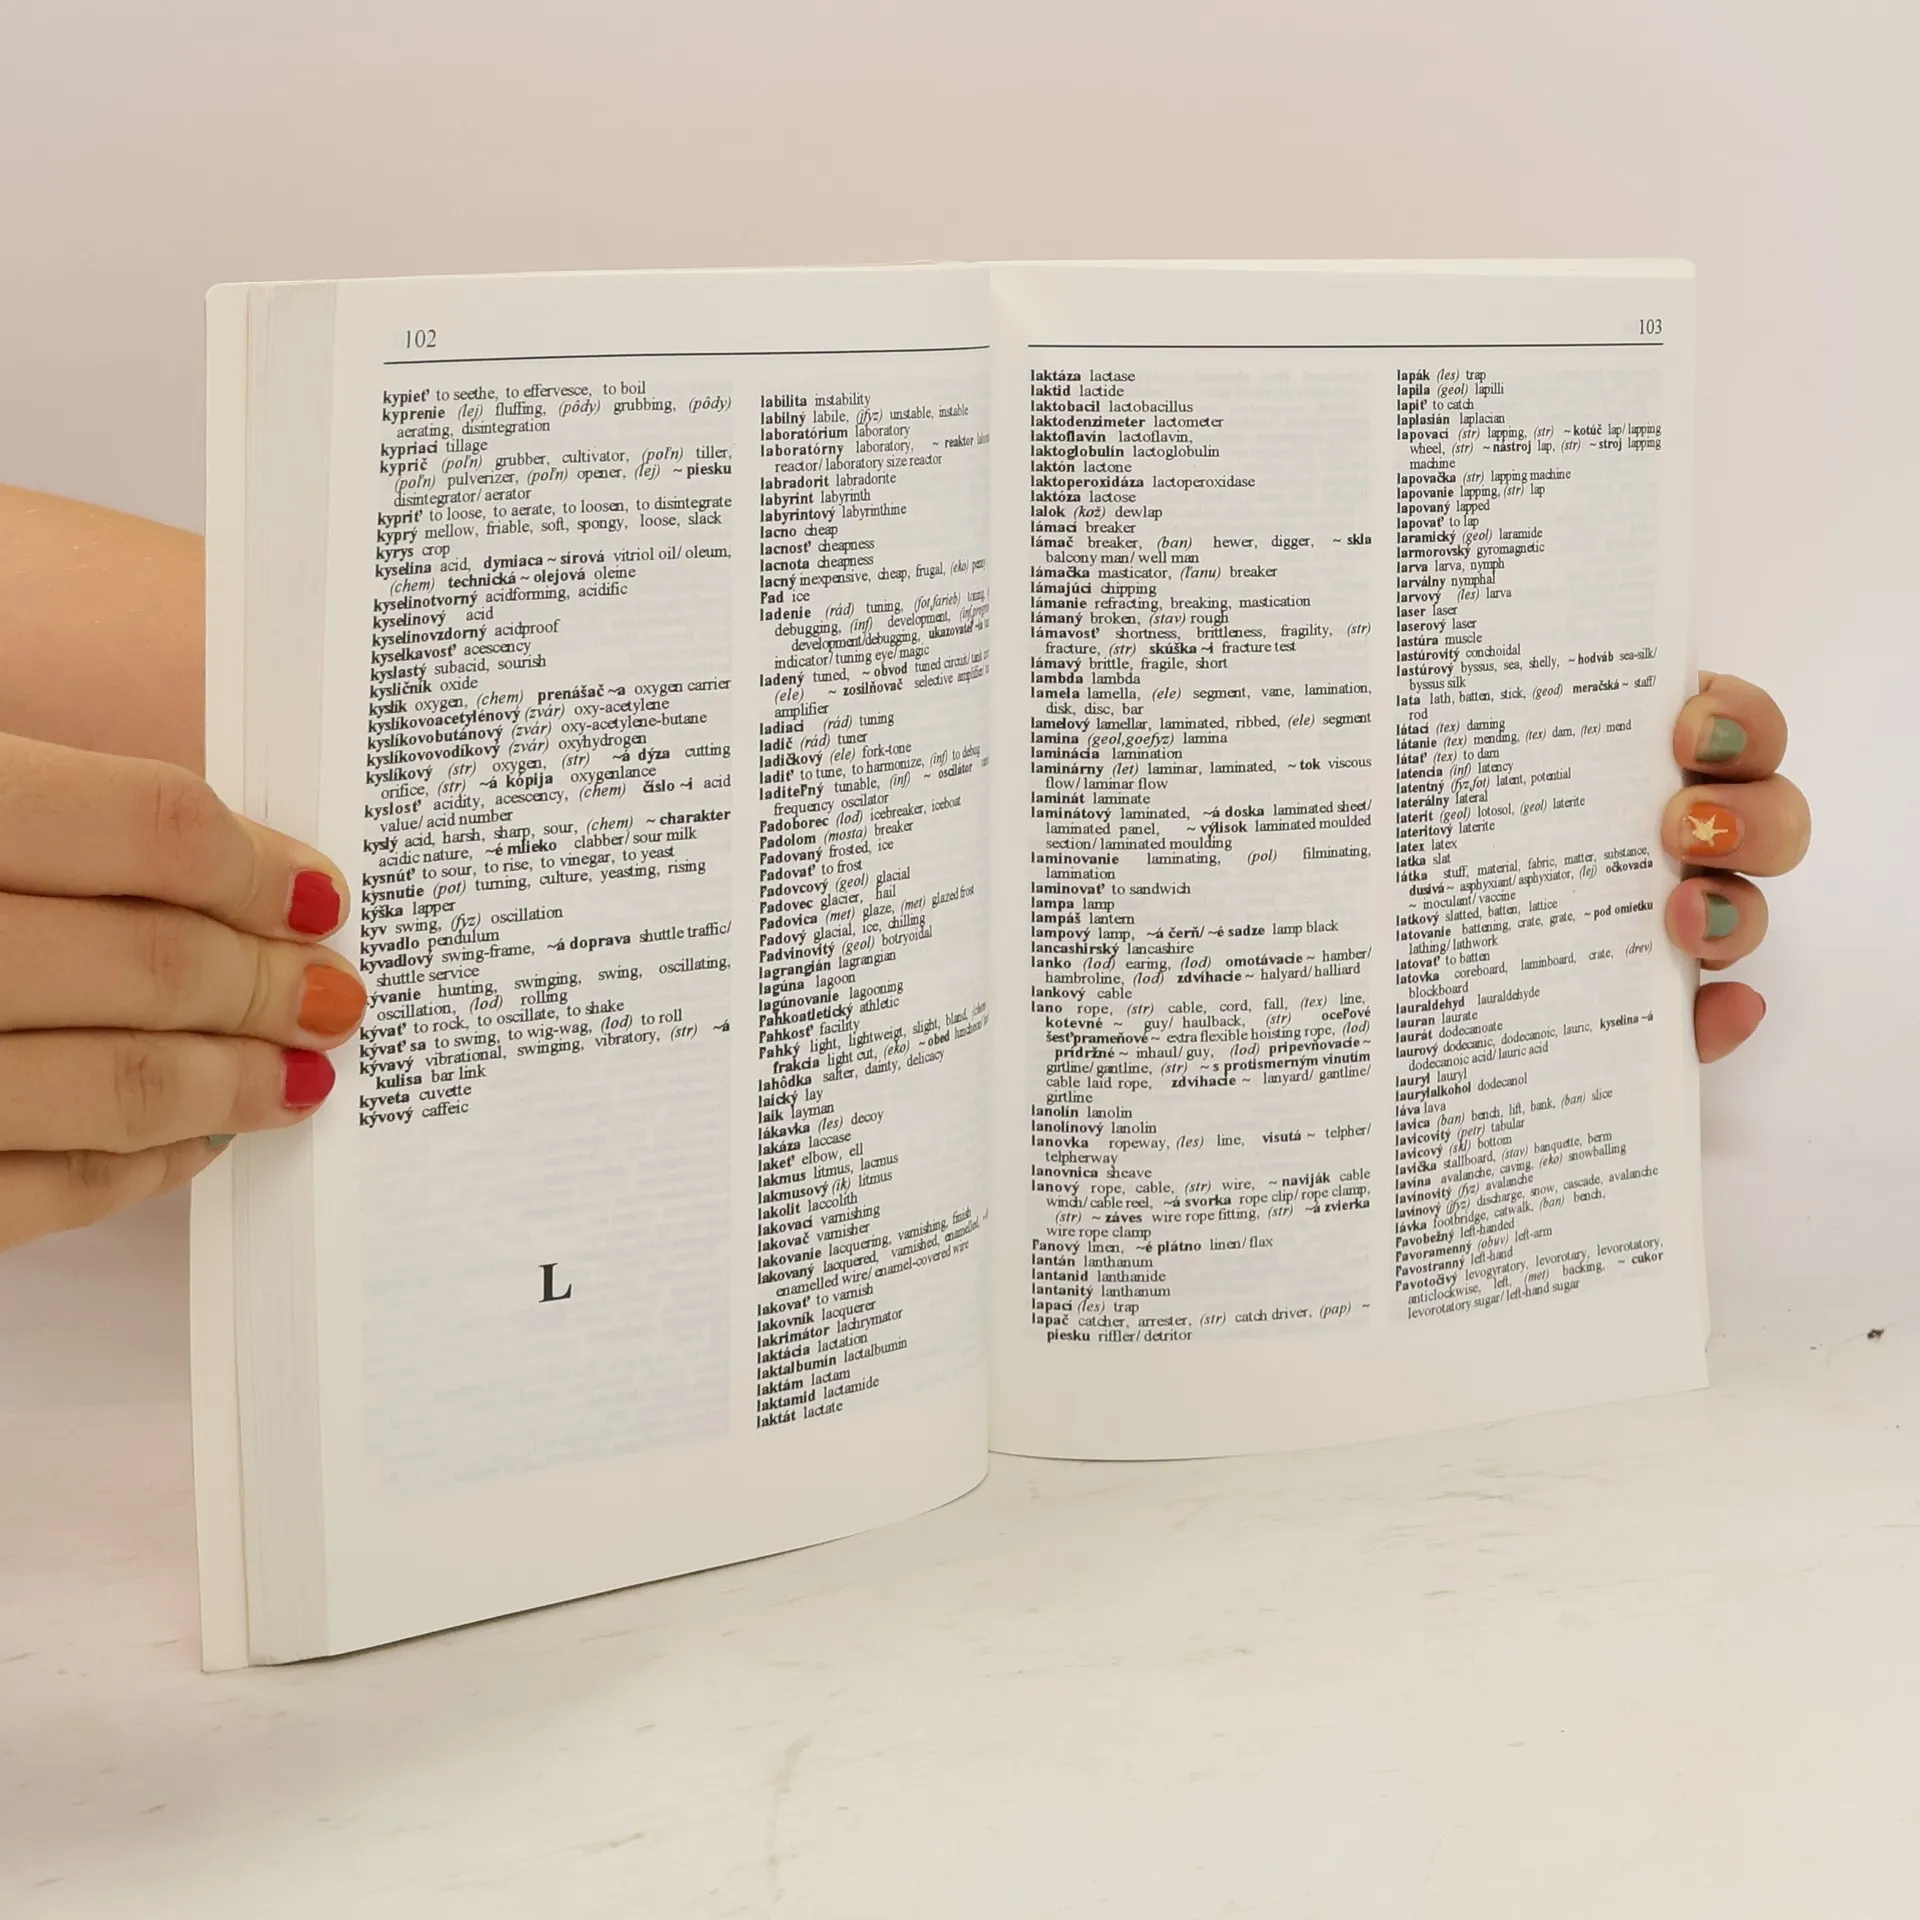 102
kypieť to seethe, to effervesce, to boil
kyprenie (lej) fluffing, (pôdy) grubbing, (pôdy)
aerating, disintegration
kypriaci tillage
kyprič (poľn) grubber, cultivator, (poľn) tiller,
(poľn) pulverizer, (poľn) opener, (lej) ~ piesku
disintegrator/ aerator
kypriť to loose, to aerate, to loosen, to disintegrate
kyprý mellow, friable, soft, spongy, loose, slack
kyrys crop
kyselina acid, dymiaca ~ sírová vitriol oil/ oleum,
(chem) technická ~ olejová oleine
kyselinotvorný acidforming, acidific
kyselinový acid
kyselinovzdorný acidproof
kyselkavosť acescency
kyslastý subacid, sourish
kysličník oxide
kyslík oxygen, (chem) prenášač ~a oxygen carrier
kyslíkovoacetylénový (zvár) oxy-acetylene
kyslíkovobutánový (zvár) oxy-acetylene-butane
kyslíkovovodíkový (zvár) oxyhydrogen
kyslíkový (str) oxygen, (str) ~á dýza cutting
orifice, (str) ~á kópija oxygenlance
kyslosť acidity, acescency, (chem) číslo ~i acid
value/ acid number
kyslý acid, harsh, sharp, sour, (chem) ~ charakter
acidic nature, ~é mlieko clabber/ sour milk
kysnúť to sour, to rise, to vinegar, to yeast
kysnutie (pot) turning, culture, yeasting, rising
kýška lapper
kyv swing, (fyz) oscillation
kyvadlo pendulum
kyvadlový swing-frame, ~á doprava shuttle traffic/
shuttle service
kývanie hunting, swinging, swing, oscillating,
oscillation, (lod) rolling
kývať to rock, to oscillate, to shake
kývať sa to swing, to wig-wag, (lod) to roll
kývavý vibrational, swinging, vibratory, (str) ~á
kulisa bar link
kyveta cuvette
kývový caffeic
L
labilita instability
labilný labile, (fyz) unstable, instable
laboratórium laboratory
laboratórny laboratory, ~ reaktor
reactor/ laboratory size reactor
labradorit labradorite
labyrint labyrinth
labyrintový labyrinthine
lacno cheap
lacnosť cheapness
lacnota cheapness
lacný inexpensive, cheap, frugal, (eko)
ľad ice
ladenie (rád) tuning, (fot,farieb) toning,
debugging, (inf) development,
development/debugging, ukazovateľ ~ia
indicator/ tuning eye/ magic
ladený tuned, ~ obvod tuned circuit/
(ele) ~ zosilňovač selective amplifier/
amplifier
ladiaci (rád) tuning
ladič (rád) tuner
ladičkový (ele) fork-tone
ladiť to tune, to harmonize, (inf) to debug
laditeľný tunable, (inf) ~ oscilátor
frequency oscilator
ľadoborec (lod) icebreaker, iceboat
ľadolom (mosta) breaker
ľadovaný frosted, ice
ľadovať to frost
ľadovcový (geol) glacial
ľadovec glacier, hail
ľadovica (met) glaze, (met) glazed frost
ľadový glacial, ice, chilling
ľadvinovitý (geol) botryoidal
lagrangián lagrangian
lagúna lagoon
lagúnovanie lagooning
ľahkoatletický athletic
ľahkosť facility
ľahký light, lightweigt, slight, bland,
frakcia light cut, (eko) ~ obed
lahôdka salter, dainty, delicacy
laický lay
laik layman
lákavka (les) decoy
lakáza laccase
lakeť elbow, ell
lakmus litmus, lacmus
lakmusový (ik) litmus
lakolit laccolith
lakovací varnishing
lakovač varnisher
lakovanie lacquering, varnishing, finish
lakovaný lacquered, varnished, enamelled,
enamelled wire/ enamel-covered wire
lakovať to varnish
lakovník lacquerer
lakrimátor lachrymator
laktácia lactation
laktalbumín lactalbumin
laktám lactam
laktamid lactamide
laktát lactate
103
laktáza lactase
laktid lactide
laktobacil lactobacillus
laktodenzimeter lactometer
laktoflavín lactoflavin,
laktoglobulín lactoglobulin
laktón lactone
laktoperoxidáza lactoperoxidase
laktóza lactose
lalok (kož) dewlap
lámací breaker
lámač breaker, (ban) hewer, digger, ~ skla
balcony man/ well man
lámačka masticator, (ľanu) breaker
lámajúci chipping
lámanie refracting, breaking, mastication
lámaný broken, (stav) rough
lámavosť shortness, brittleness, fragility, (str)
fracture, (str) skúška ~i fracture test
lámavý brittle, fragile, short
lambda lambda
lamela lamella, (ele) segment, vane, lamination,
disk, disc, bar
lamelový lamellar, laminated, ribbed, (ele) segment
lamina (geol,goefyz) lamina
laminácia lamination
laminárny (let) laminar, laminated, ~ tok viscous
flow/ laminar flow
laminát laminate
laminátový laminated, ~á doska laminated sheet/
laminated panel, ~ výlisok laminated moulded
section/ laminated moulding
laminovanie laminating, (pol) filminating,
lamination
laminovať to sandwich
lampa lamp
lampáš lantern
lampový lamp, ~á čerň/ ~é sadze lamp black
lancashirský lancashire
lanko (lod) earing, (lod) omotávacie ~ hamber/
hambroline, (lod) zdvíhacie ~ halyard/ halliard
lankový cable
lano rope, (str) cable, cord, fall, (tex) line,
kotevné ~ guy/ haulback, (str) oceľové
šesťprameňové ~ extra flexible hoisting rope, (lod)
prídržné ~ inhaul/ guy, (lod) pripevňovacie ~
girtline/ gantline, (str) ~ s protismerným vinutím
cable laid rope, zdvíhacie ~ lanyard/ gantline/
girtline
lanolín lanolin
lanolínový lanolin
lanovka ropeway, (les) line, visutá ~ telpher/
telpherway
lanovnica sheave
lanový rope, cable, (str) wire, ~ naviják cable
winch/ cable reel, ~á svorka rope clip/ rope clamp,
(str) ~ záves wire rope fitting, (str) ~á zvierka
wire rope clamp
ľanový linen, ~é plátno linen/ flax
lantán lanthanum
lantanid lanthanide
lantanitý lanthanum
lapací (les) trap
lapač catcher, arrester, (str) catch driver, (pap) ~
piesku riffler/ detritor
lapák (les) trap
lapila (geol) lapilli
lapiť to catch
laplasián laplacian
lapovací (str) lapping, (str) ~ kotúč lap/ lapping
wheel, (str) ~ nástroj lap, (str) ~ stroj lapping
machine
lapovačka (str) lapping machine
lapovanie lapping, (str) lap
lapovaný lapped
lapovať to lap
laramický (geol) laramide
larmorovský gyromagnetic
larva larva, nymph
larválny nymphal
larvový (les) larva
laser laser
laserový laser
lastúra muscle
lastúrovitý conchoidal
lastúrový byssus, sea, shelly, ~ hodváb sea-silk/
byssus silk
lata lath, batten, stick, (geod) meračská ~ staff/
rod
látací (tex) darning
látanie (tex) mending, (tex) darn, (tex) mend
látať (tex) to darn
latencia (inf) latency
latentný (fyz,fot) latent, potential
laterálny lateral
laterit (geol) lotosol, (geol) laterite
lateritový laterite
latex latex
latka slat
látka stuff, material, fabric, matter, substance,
dusivá ~ asphyxiant/ asphyxiator, (lej) očkovacia
~ inoculant/ vaccine
latkový slatted, batten, lattice
latovanie battening, crate, grate, ~ pod omietku
lathing/ lathwork
latovať to batten
latovka coreboard, laminboard, crate, (drev)
blockboard
lauraldehyd lauraldehyde
lauran laurate
laurát dodecanoate
laurový dodecanic, dodecanoic, lauric, kyselina ~á
dodecanoic acid/ lauric acid
lauryl lauryl
laurylalkohol dodecanol
láva lava
lavica (ban) bench, lift, bank, (ban) slice
lavicovitý (petr) tabular
lavicový (skl) bottom
lavička stallboard, (stav) banquette, berm
lavína avalanche, caving, (eko) snowballing
lavínovitý (fyz) avalanche
lavínový (fyz) discharge, snow, cascade, avalanche
lávka footbridge, catwalk, (ban) bench,
ľavobežný left-handed
ľavoramenný (obuv) left-arm
ľavostranný left-hand
ľavotočivý levogyratory, levorotary, levorotatory,
anticlockwise, left, (met) backing, ~ cukor
levorotatory sugar/ left-hand sugar